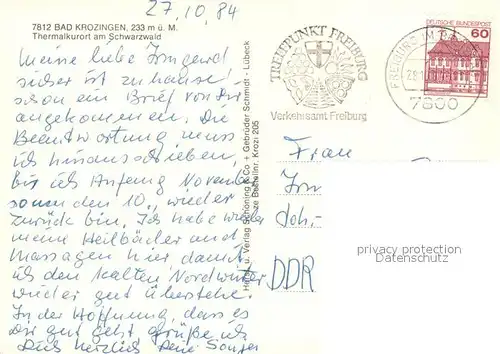 27.10.84
7812 BAD KROZINGEN, 233 m ü. M.
Thermalkurort am Schwarzwald
Meine liebe Irmgard
sicher ist zu hause
schon ein Brief von Dir
angekommen. Die
Beantwortung muss
ich hinausschieben,
bis ich Anfang November
den 10., wieder
zurück bin. Ich habe wieder
meine Heilbäder und
Massagen hier damit
ich den kalten Nordwinter
wieder gut überstehe.
In der Hoffnung, dass es
Dir gut geht grüße ich
Dich herzlich Deine
Verlag Schöning & Co + Gebrüder Schmidt · Lübeck
Bestellnr. Krozi 205
TREFFPUNKT FREIBURG
Verkehrsamt Freiburg
FREIBURG IM
7800
DEUTSCHE BUNDESPOST
60
Frau
Irm
Joh.-
DDR
privacy protection
Datenschutz